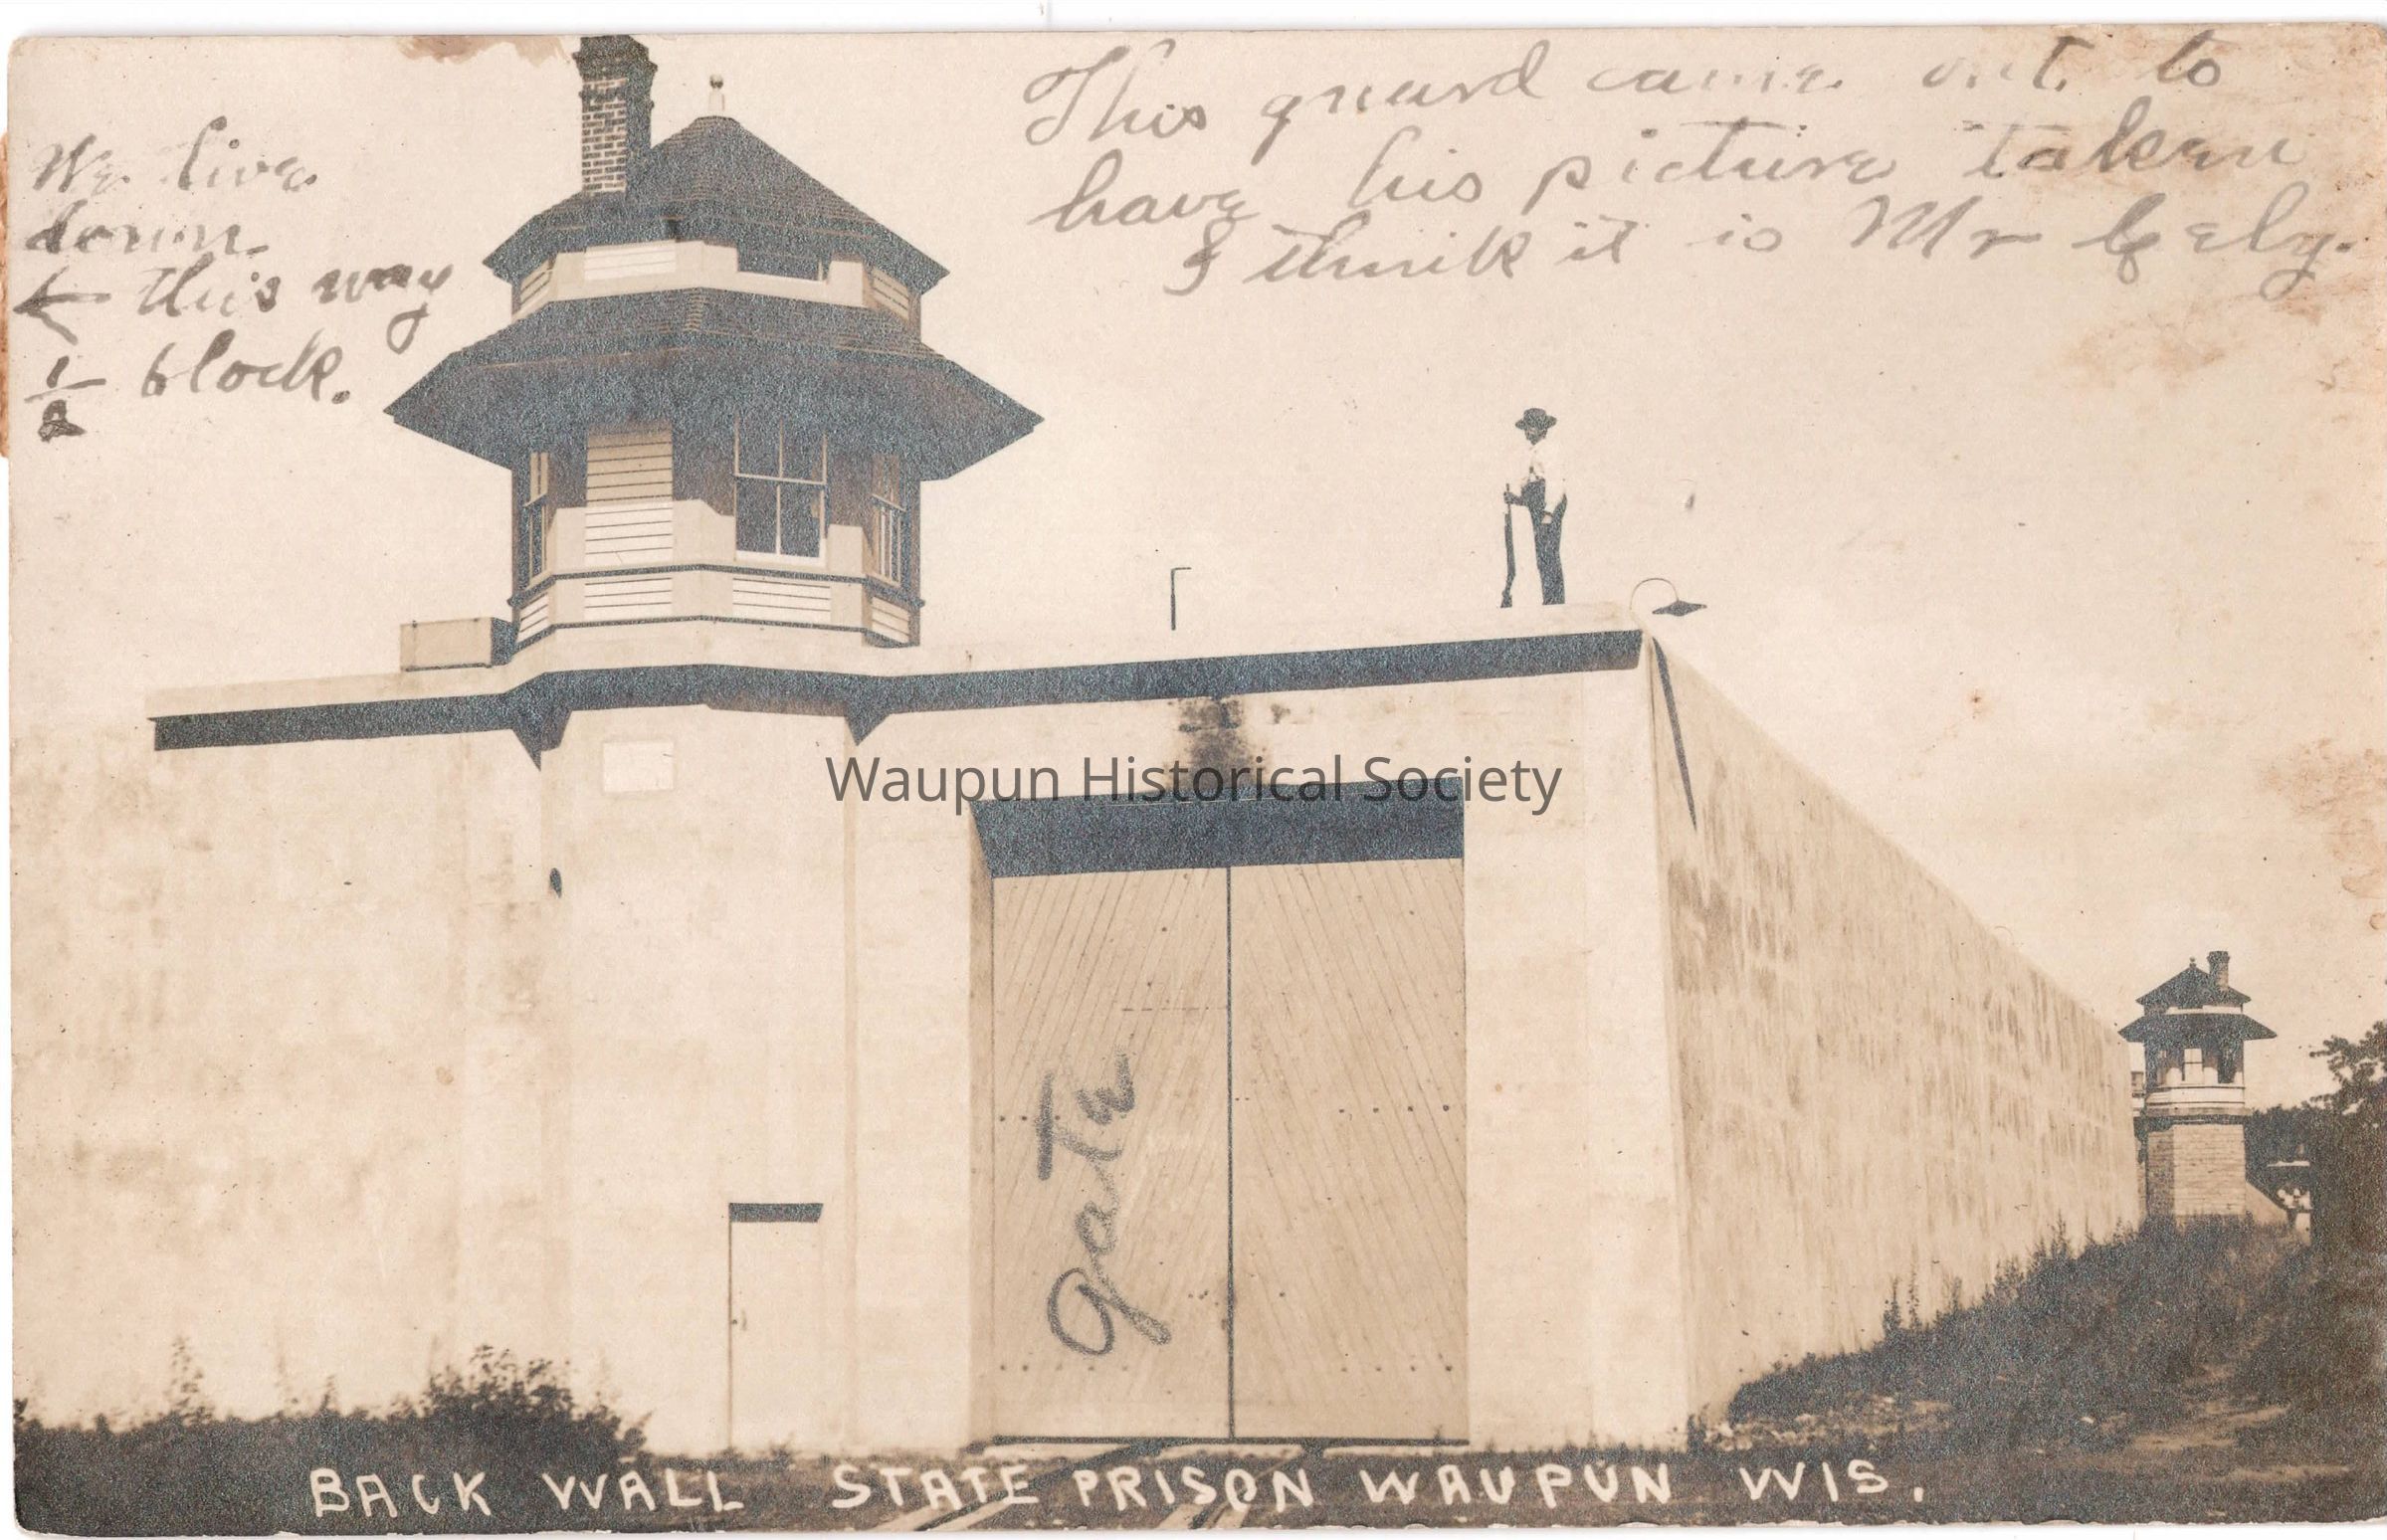 We live
down
← this way
1/2 block.
This guard came out to
have his picture taken
I think it is Mr
Waupun Historical Society
gate
BACK WALL STATE PRISON WAUPUN WIS.